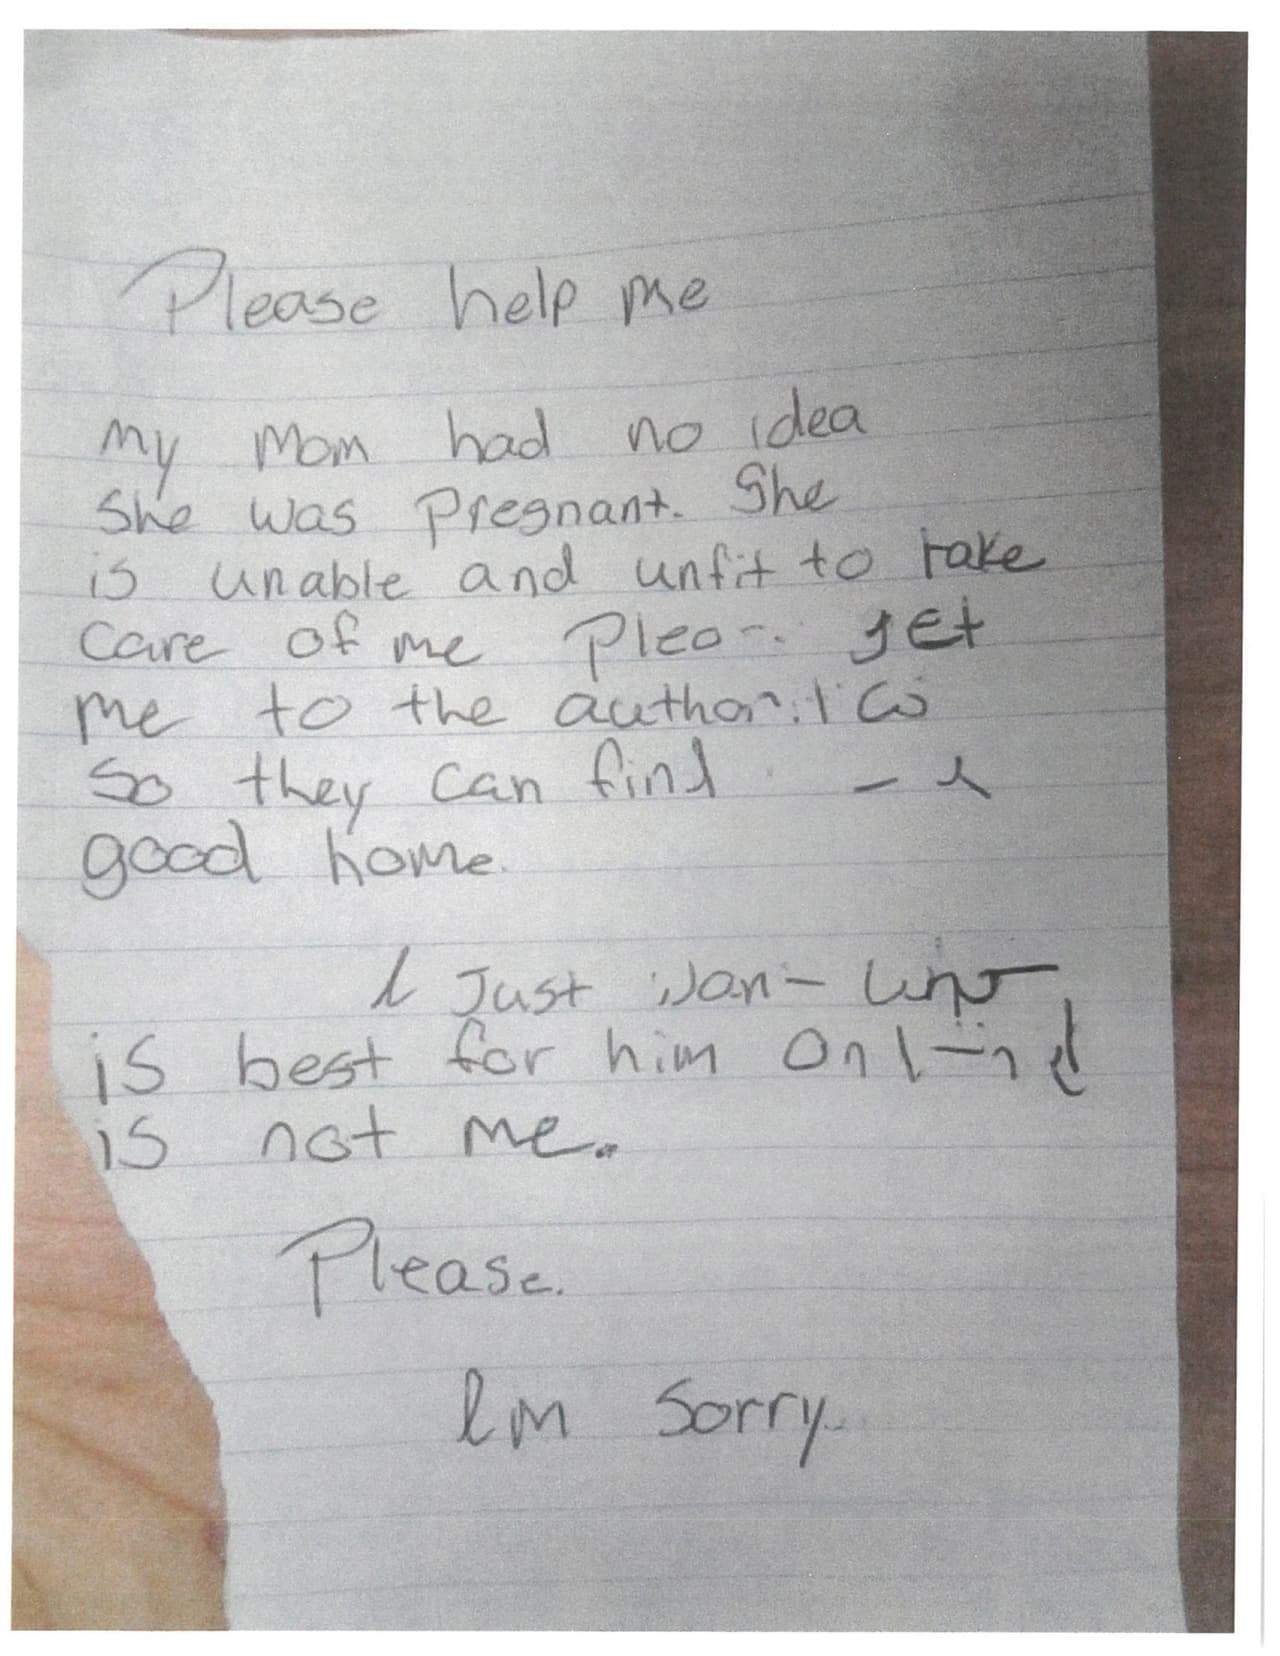 Please help me
My Mom had no idea
She was Pregnant. She
is unable and unfit to take
care of me get
me to the
So they can find
good home.
I Just
is best for him
is not me.
Please.
Im Sorry.